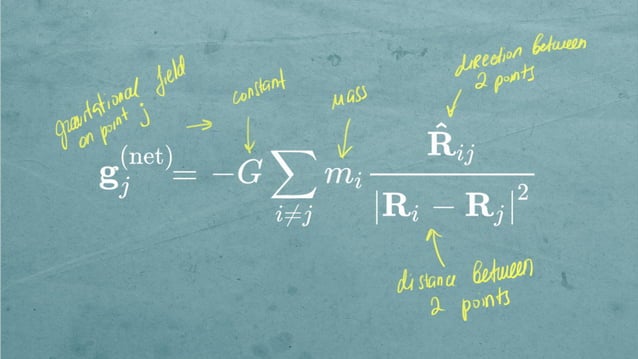 gravitational field
on point j
constant
mass
direction between
2 points
𝐠ⱼ⁽ⁿᵉᵗ⁾ = −G ∑_{i≠j} mᵢ \frac{\hat{𝐑}_{ij}}{|𝐑ᵢ − 𝐑ⱼ|²}
distance between
2 points